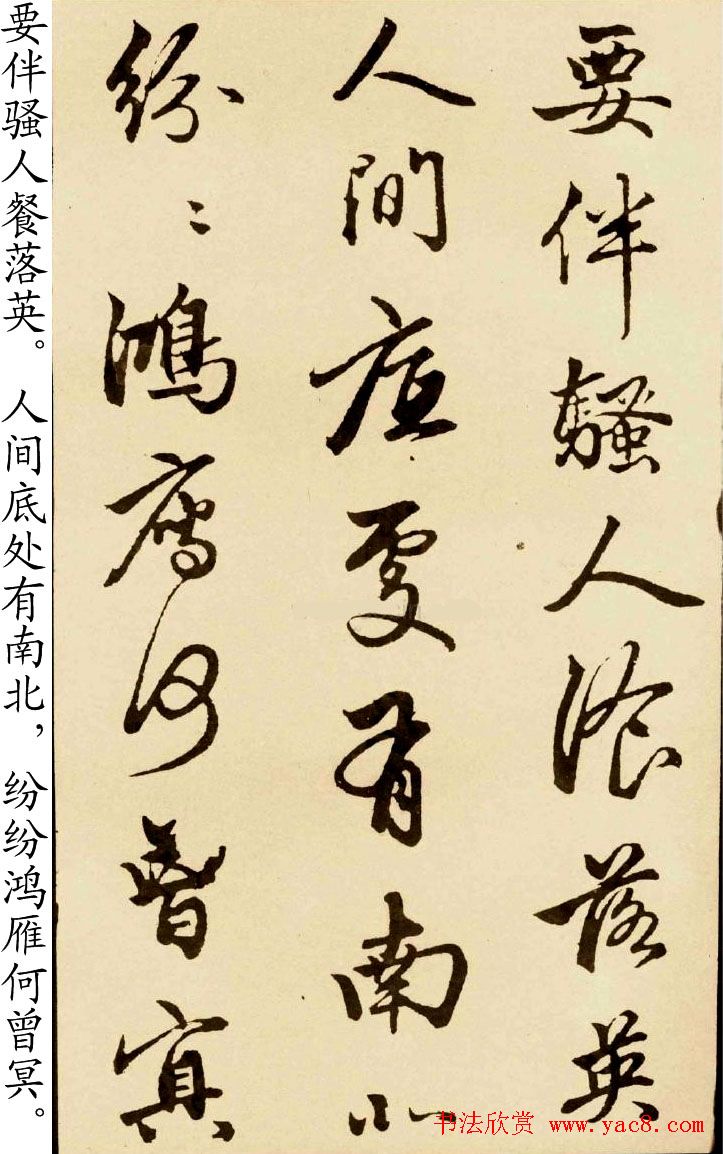 要伴騷人湌落英
人間底處有南北
紛〻鴻鴈何曾冥
要伴骚人餐落英。人间底处有南北，纷纷鸿雁何曾冥。
书法欣赏 www.yac8.com